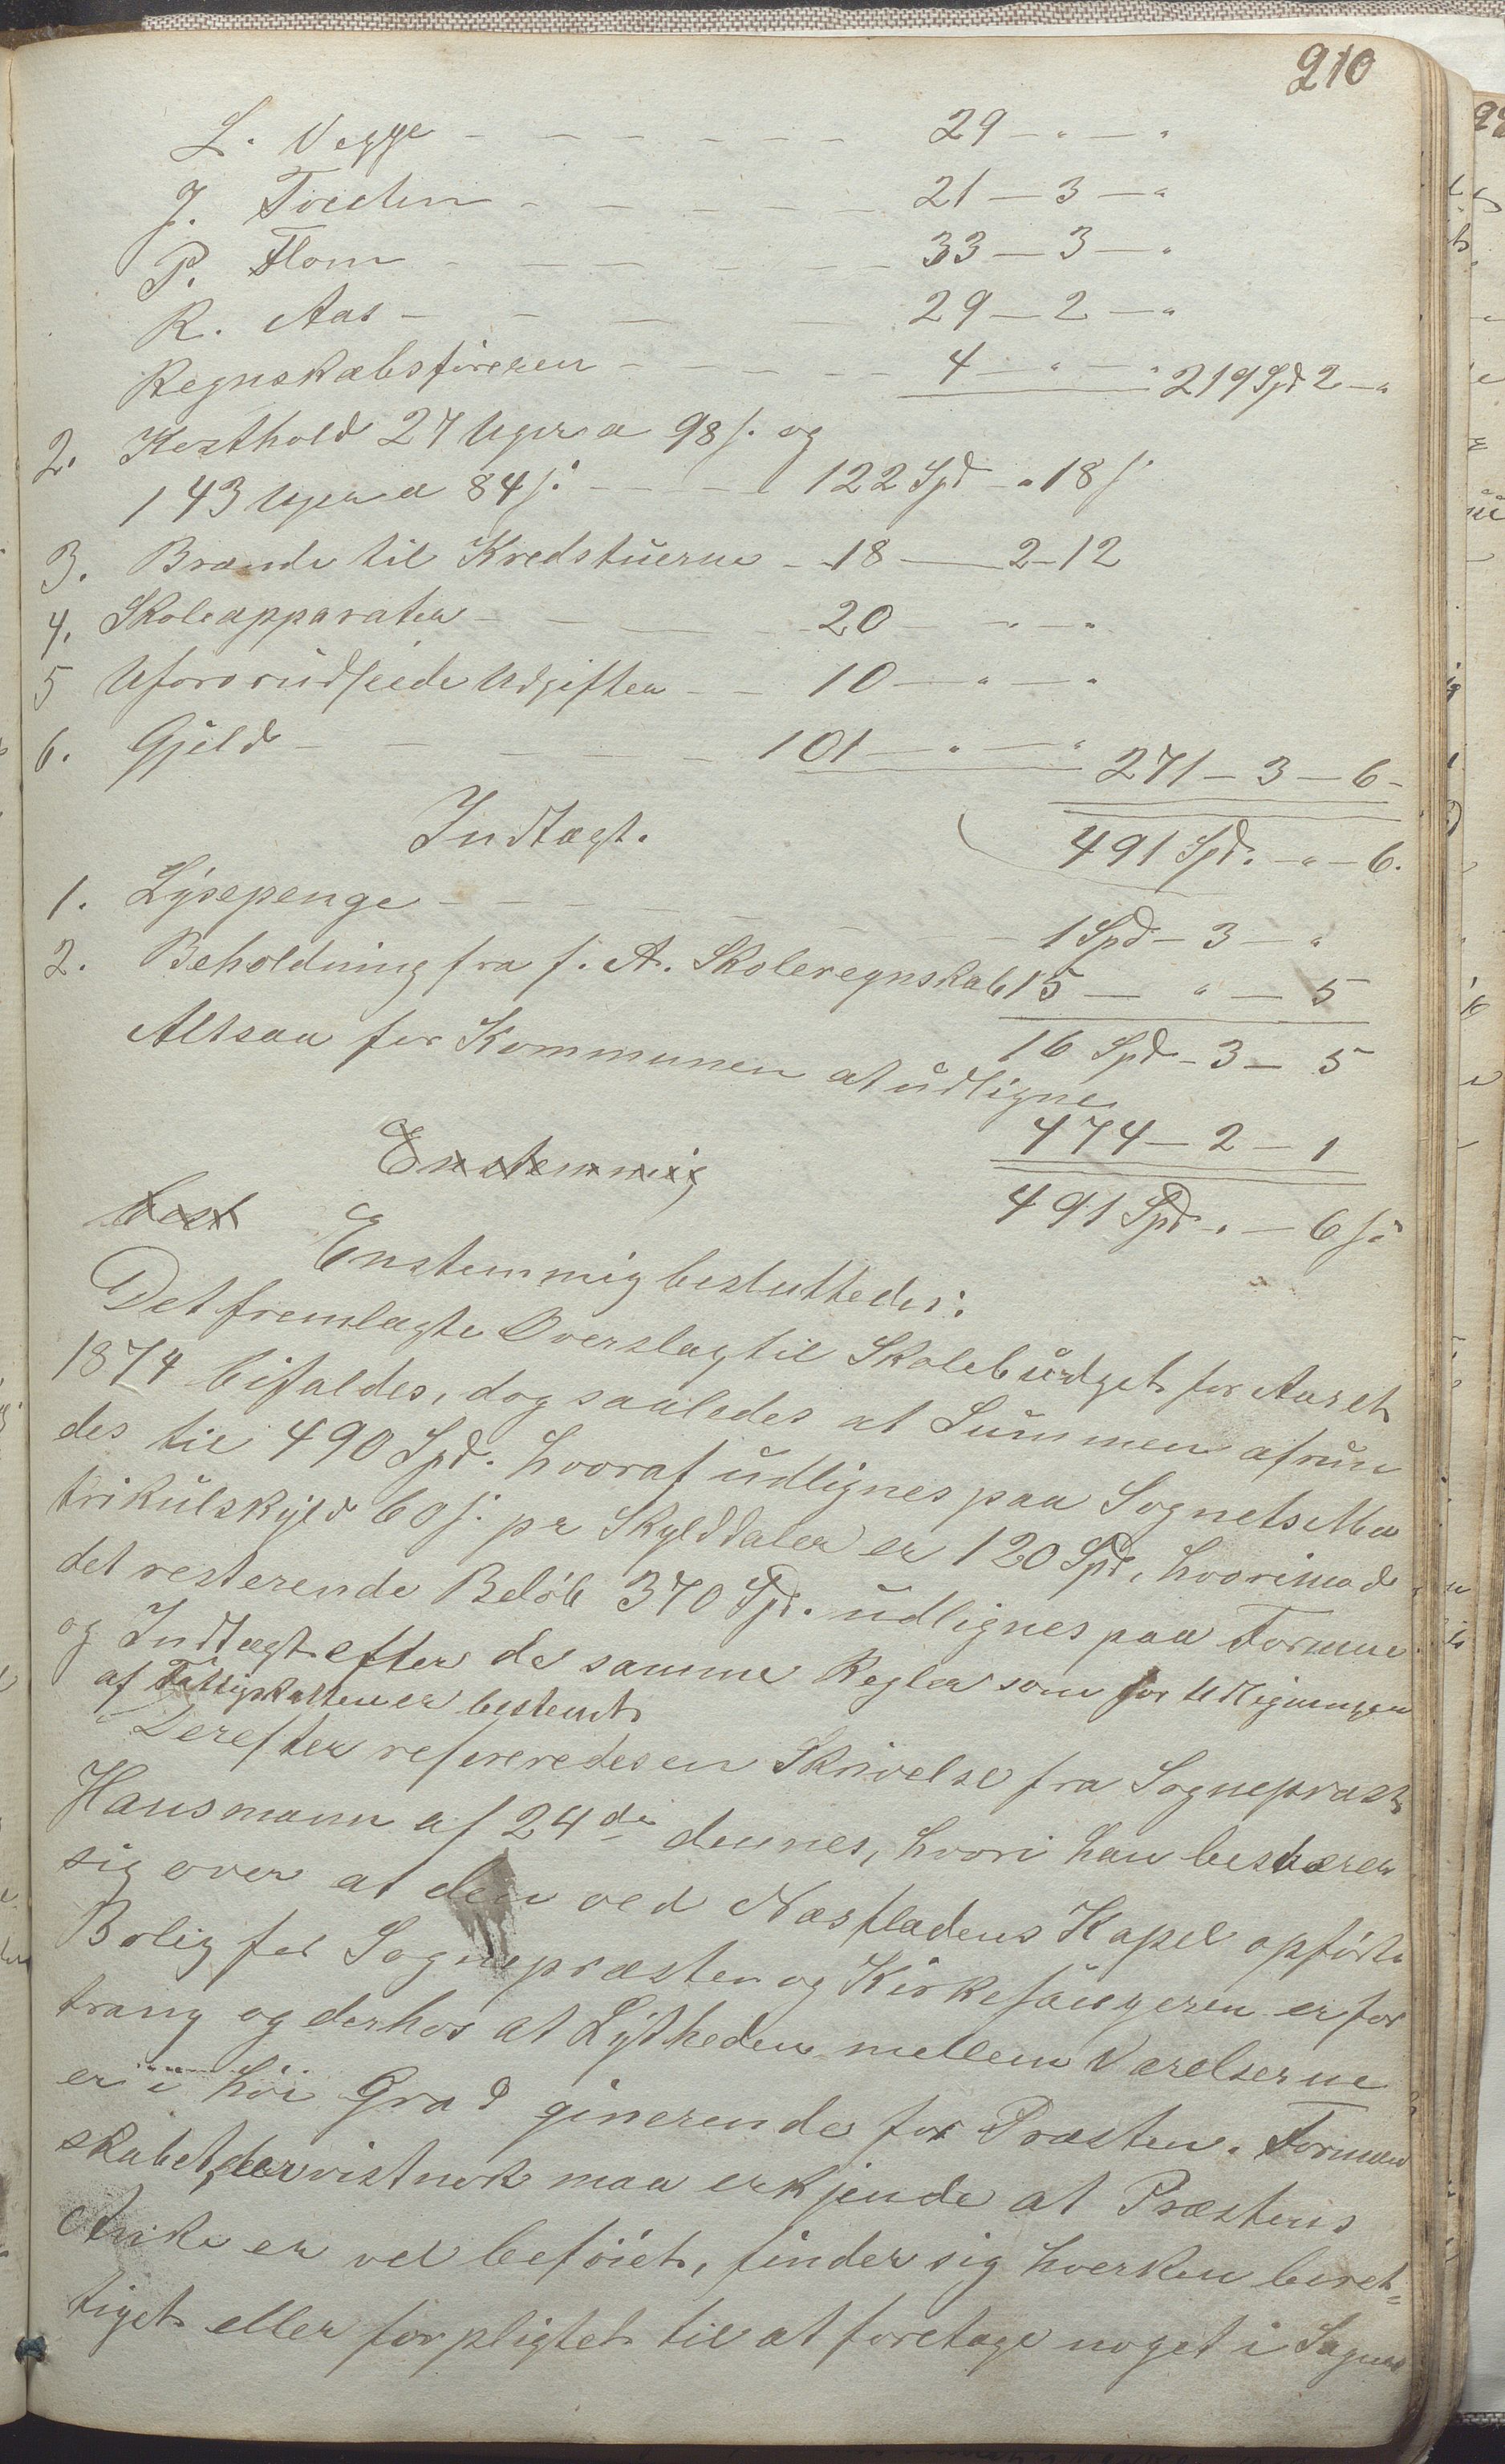 210
L. Vegge — — — — — — 29 — " — "
J. Tvedten — — — — — 21 — 3 — "
P. Flom — — — — — — 33 — 3 — "
R. Aas — — — — 29 — 2 — "
Regnskabsføreren — — — — — 4 — " — " 219 Spd 2 — "
2. Kosthold 27 Uger a 98 s. og
143 Uger a 84 s. — — — 122 Spd — " 18 s
3. Brænde til Kredstuerne — 18 — 2 — 12
4. Skoleapparater — — — — 20 — " — "
5 Uforudseede Udgifter — — 10 — " — "
6. Gjeld — — — — — 101 — " — " 271 — 3 — 6 —
Indtægt. 491 Spd. — " — 6.
1. Lysepenge — — — — — — 1 Spd — 3 — "
2. Beholdning fra f. A. Skoleregnskab 15 — " — 5
16 Spd — 3 — 5
Altsaa for Kommunen at udligne
474 — 2 — 1
Enstemmig
491 Spd. " — 6 s.
best
Enstemmig besluttedes:
Det fremlagte Overslag til Skolebudget for Aaret
1874 bifaldes, dog saaledes at Summen afrun
des til 490 Spd. hvoraf udlignes paa Sognets Ma
trikulskyld 60 s. pr Skylddaler er 120 Spd, hvorimod
det resterende Beløb 370 Spd. udlignes paa Formue
og Indtægt efter de samme Regler som for Udligningen
af Fattigskatten er bestemt
Derefter refereredes en Skrivelse fra Sognepræst
Hausmann af 24de dennes, hvori han besværer
sig over at den ved Næsfladens Kapel opførte
Bolig for Sognepræsten og Kirkesangeren er for
trang og derhos at Lydheden mellem Værelserne
er i høi Grad generende for Præsten. Formand
skabet, der vistnok maa erkjende at Præstens
Anke er vel beføiet, finder sig hverken beret-
tiget eller forpligtet til at foretage noget i Sagen